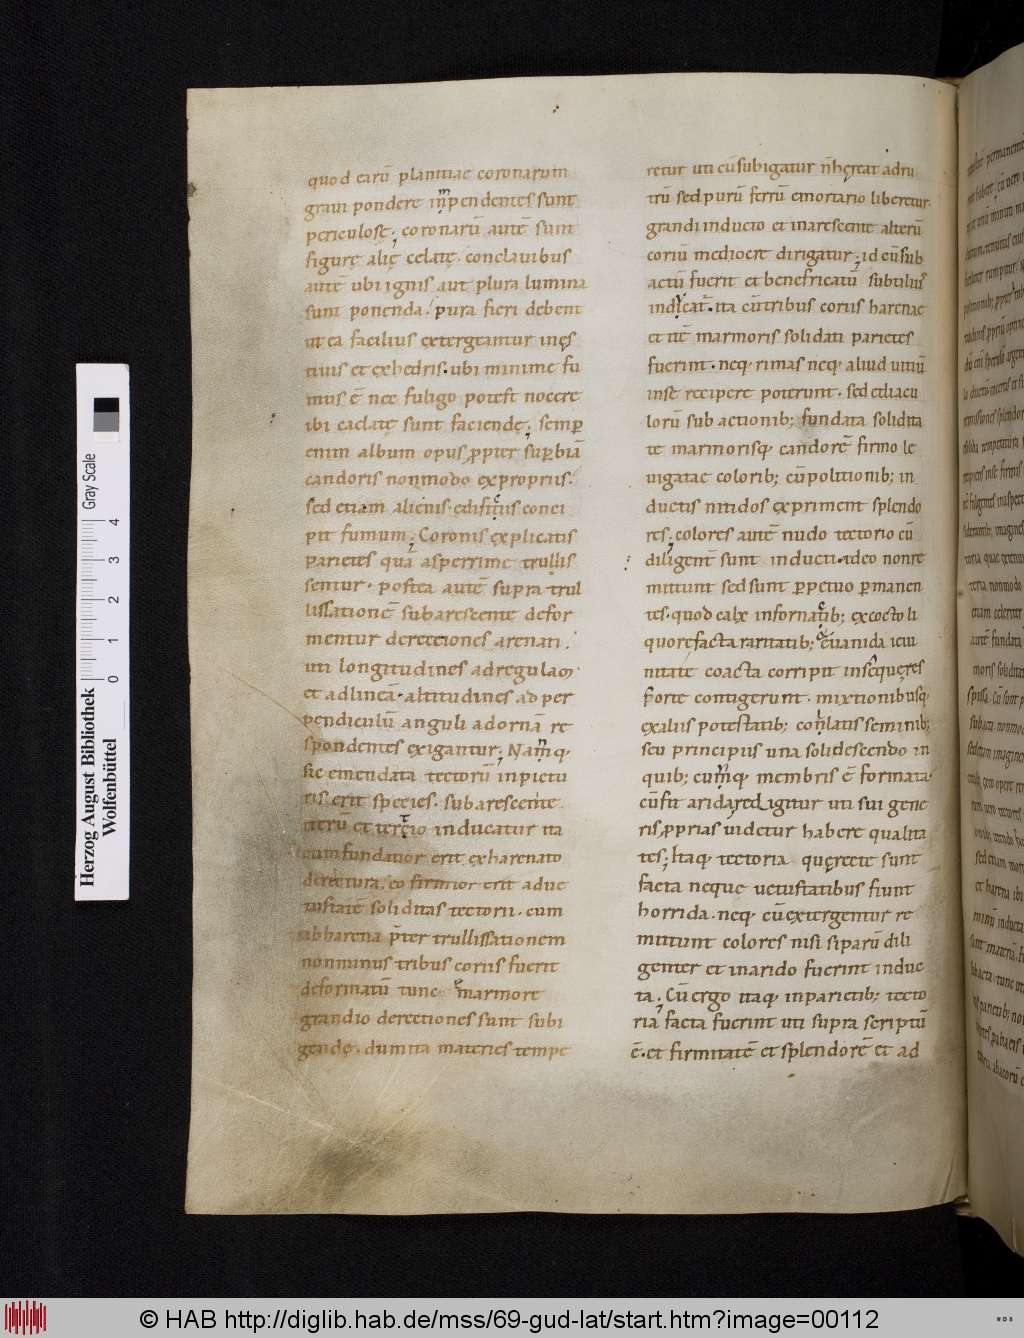 quod earū planitiae coronarum
graui pondere inpendentes sunt
periculosę; coronarū autē sunt
figurę alię celatę. conclauibus
autē ubi ignis aut plura lumina
sunt ponenda. pura fieri debent
ut ea facilius extergeantur in ęs
tiuis et exhedris. ubi minime fu
mus ē nec fuligo potest nocere
ibi caelatę sunt faciendę; semp̄
enim album opus ꝓpter suꝑbiā
candoris nonmodo expropriis.
sed etiam alienis. edificiis conci
pit fumum; Coronis explicatis
parietes quā asperrime trullis
sentur. postea autē supra trul
lissationē subarescente defor
mentur derectiones arenati.
uti longitudines adregulam
et adlineā. altitudines ad per
pendiculū anguli adornā re
spondentes exigantur; Namq·
sic emendata tectorū inpictu
ris erit species. subarescente
iterū et tertio inducatur ita
cum fundatior erit exharenato
derectura. eo firmior erit ad ue
tustatē soliditas tectorii. cum
abharena p̄ter trullissationem
nonminus tribus coriis fuerit
deformatū tunc e marmore
grandio derectiones sunt subi
gendę. dumita materies tempe
retur uti cū subigatur n̄ hęreat adru
trū sed purū ferrū emortario liberetur.
grandi inducto et inarescente alterū
coriū mediocre dirigatur; id cū sub
actū fuerit et benefricatū subtilius
indicat̄. ita cū tribus coriis harenae
et itē marmoris solidati parietes
fuerint. neq· rimas neq· aliud uitiū
inse recipere poterunt. sed etliacu
lorū subactionib; fundata solidita
te marmorisq· candorē firmo le
uigatae colorib; cū politionib; in
ductis nitidos expriment splendo
res; colores autē nudo tectorio cū
diligent̄ sunt inducti. ideo nonre
mittunt sed sunt ꝑpetuo ꝑmanen
tes. quod calx infornacib; excocto li
quore facta raritatib; euanida ieiu
nitate coacta corripit inse quęres
forte contigerunt. mixtionibusq·
exaliis potestatib; conlatis seminib;
seu principiis una solidescendo in
quib; cumq· membris ē formata.
cū fit arida redigitur uti sui gene
ris ꝓprias uidetur habere qualita
tes; Itaq· tectoria quęrecte sunt
facta neque uetustatibus fiunt
horrida. neq· cū extergentur re
mittunt colores nisi siparū dili
genter et inarido fuerint induc
ta; Cū ergo itaq· inparietib; tecto
ria facta fuerint uti supra scriptū
ē. et firmitatē et splendorē et ad
Herzog August Bibliothek
Wolfenbüttel
0 1 2 3 4
Gray Scale
© HAB http://diglib.hab.de/mss/69-gud-lat/start.htm?image=00112